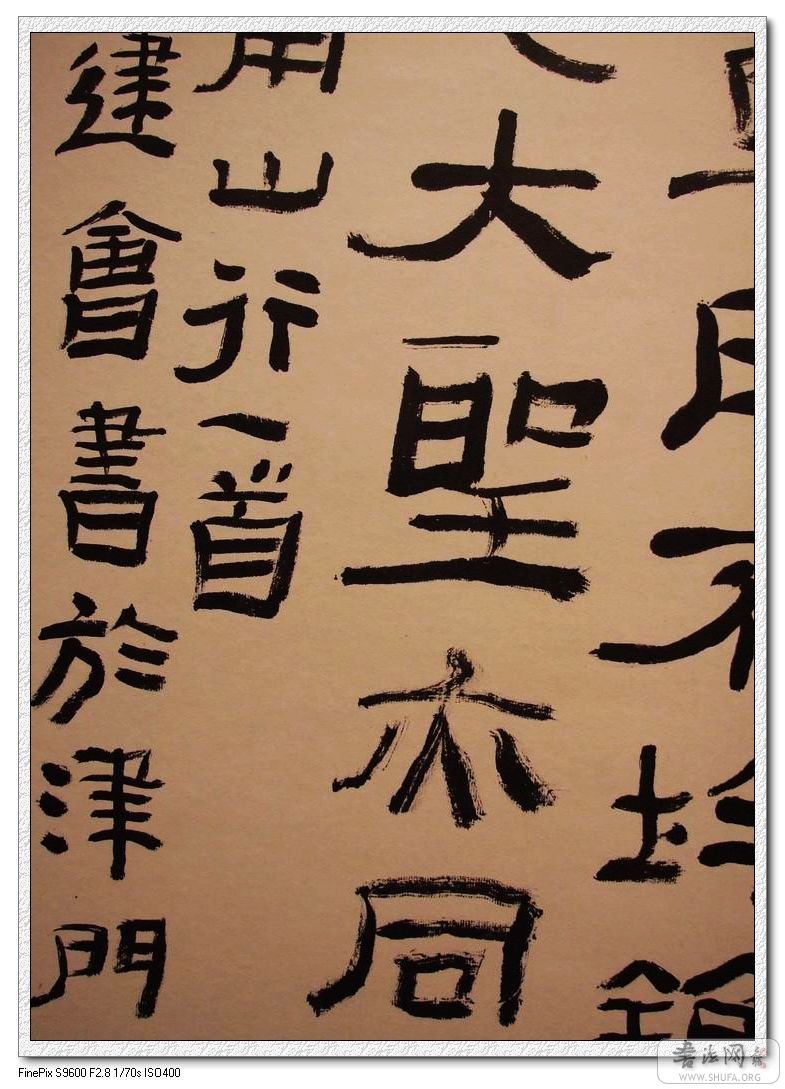 不均
大聖亦同
山行一首
建會書於津門
FinePix S9600 F2.8 1/70s ISO400
書法网
WWW.SHUFA.ORG